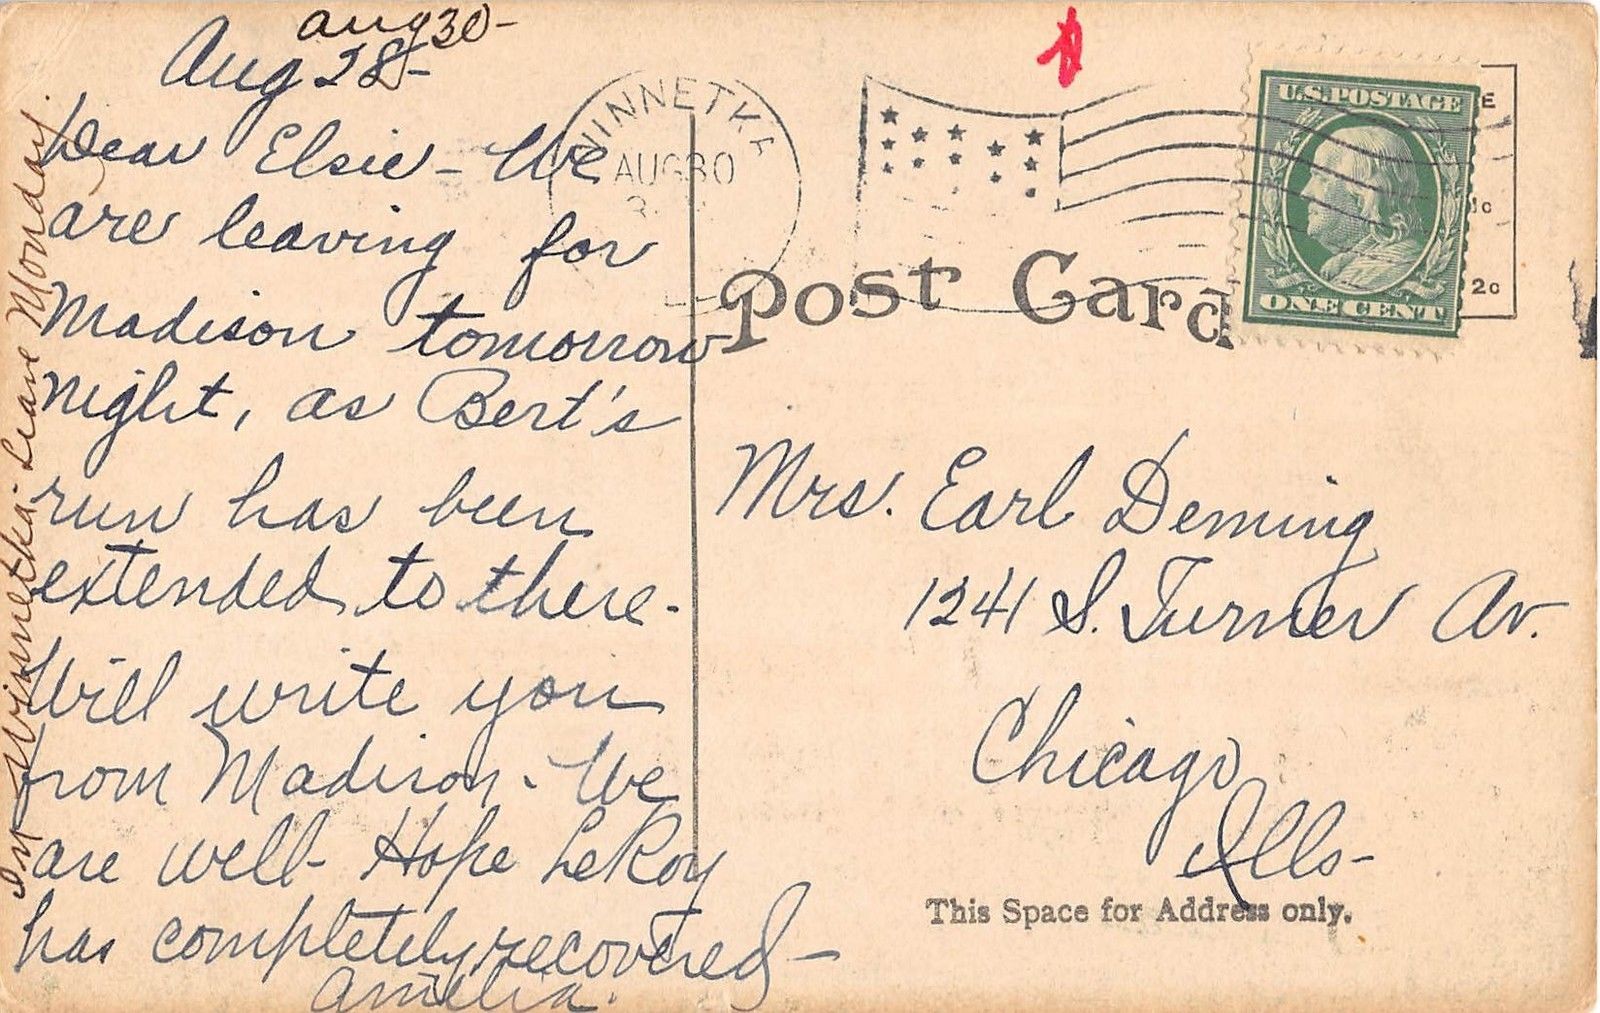 Aug 30-
Aug 28-
Dear Elsie - We
are leaving for
Madison tomorrow
night, as Bert's
run has been
extended to there.
Will write you
from Madison. We
are well- Hope LeRoy
has completely recovered-
Amelia.
In Winnetka. Leave Monday.
WINNETKA
AUG 30
U.S. POSTAGE
ONE CENT
E
1c
2c
Post Card
Mrs. Earl Deming
1241 S. Turner Av.
Chicago
Ills-
This Space for Address only.